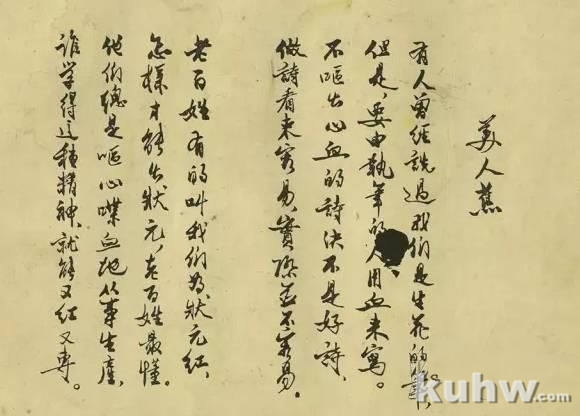 美人蕉
有人曾经說过我们是生花的笔,
但是,要由執笔的人用血来寫。
不嘔出心血的詩决不是好詩,
做詩看来容易,實際並不容易。
老百姓有的叫我们为狀元红,
怎樣才能出狀元,老百姓最懂。
他们總是嘔心喋血地从事生產,
谁学得这種精神,就能又红又專。
kuhw.com